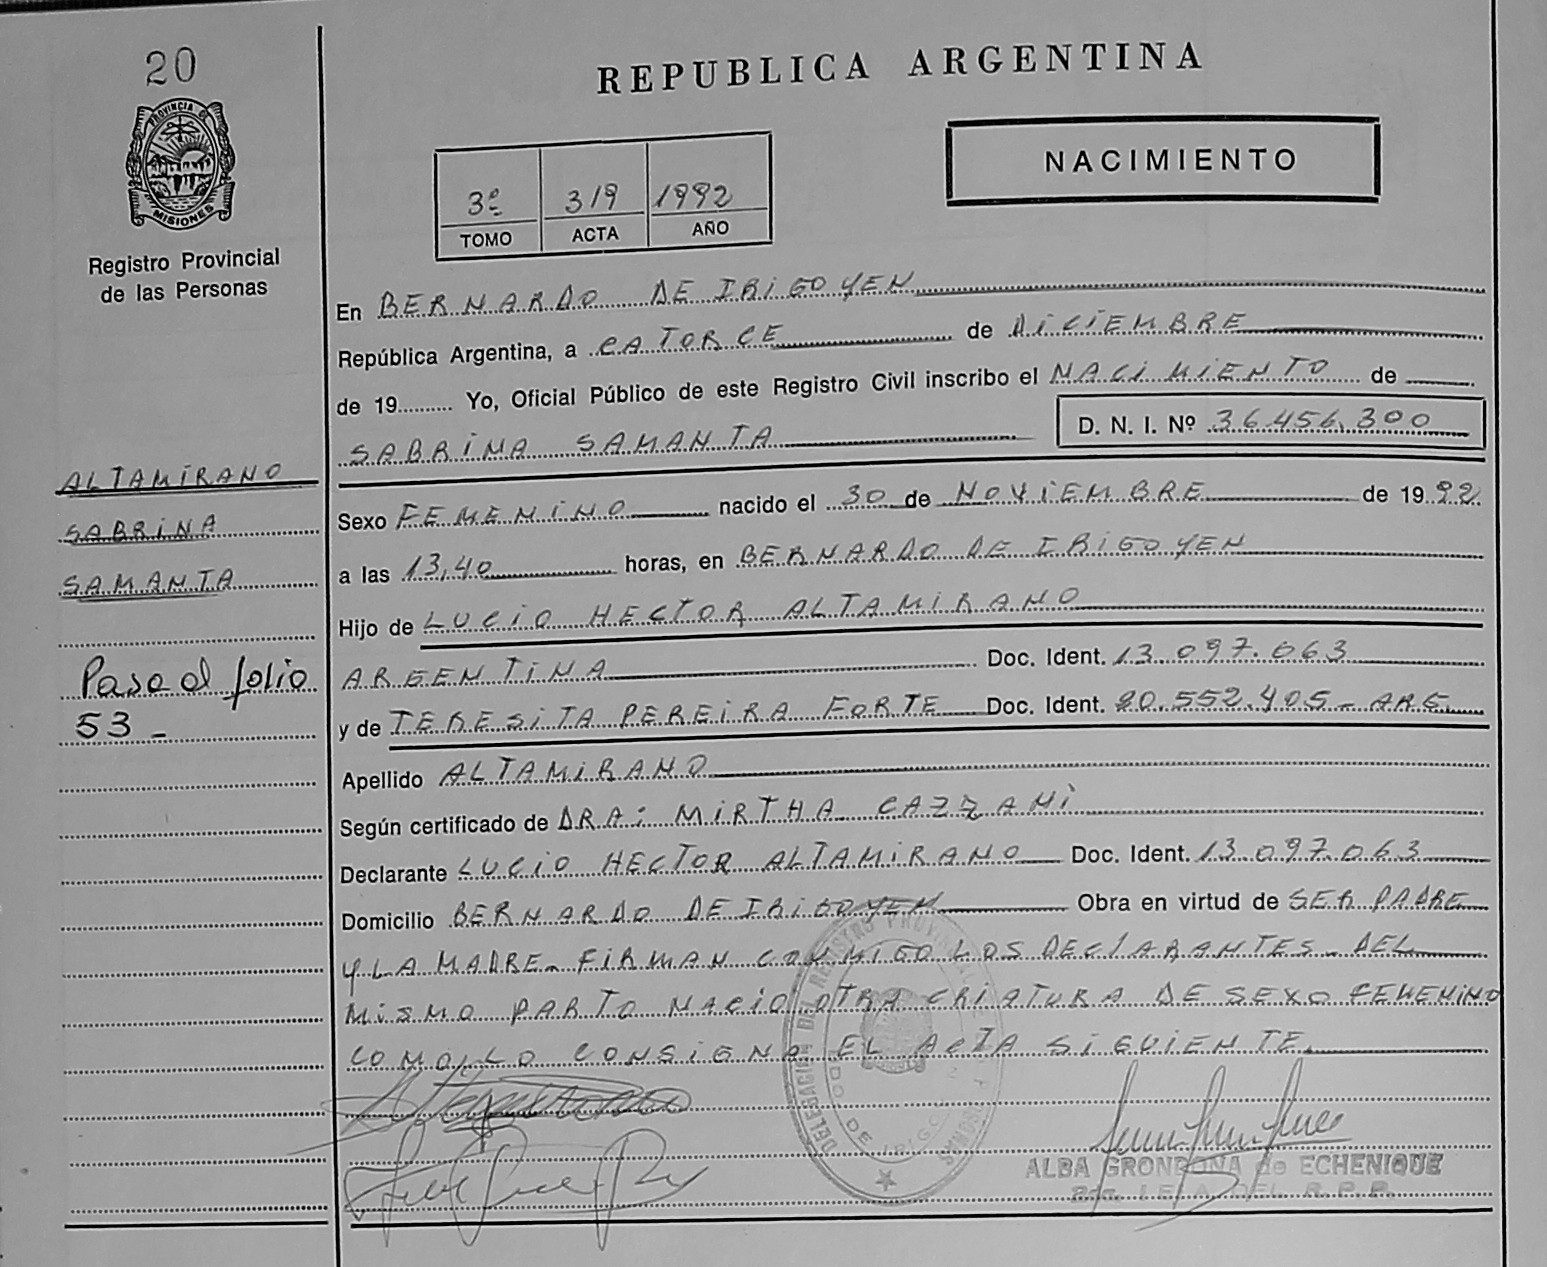 20
REPUBLICA ARGENTINA
PROVINCIA DE
MISIONES
Registro Provincial
de las Personas
NACIMIENTO
3º 319 1992
TOMO ACTA AÑO
En BERNARDO DE IRIGOYEN
República Argentina, a CATORCE de DICIEMBRE
de 19.......... Yo, Oficial Público de este Registro Civil inscribo el NACIMIENTO de
SABRINA SAMANTA D. N. I. Nº 36.456.300
ALTAMIRANO
SABRINA
SAMANTA
Pasa al folio
53 -
Sexo FEMENINO nacido el 30 de NOVIEMBRE de 1992
a las 13,40 horas, en BERNARDO DE IRIGOYEN
Hijo de LUCIO HECTOR ALTAMIRANO
ARGENTINA Doc. Ident. 13.097.063
y de TERESITA PEREIRA FORTE Doc. Ident. 20.552.405 - ARG.
Apellido ALTAMIRANO
Según certificado de DRA: MIRTHA CAZZANI
Declarante LUCIO HECTOR ALTAMIRANO Doc. Ident. 13.097.063
Domicilio BERNARDO DE IRIGOYEN Obra en virtud de SER PADRE
Y LA MADRE - FIRMAN CONMIGO LOS DECLARANTES - DEL
MISMO PARTO NACIO OTRA CRIATURA DE SEXO FEMENINO
COMO LO CONSIGNA EL ACTA SIGUIENTE.
DELEGACION DEL REGISTRO PROVINCIAL DE PERSONAS
ALBA GRONDONA de ECHENIQUE
DEL R.P.P.